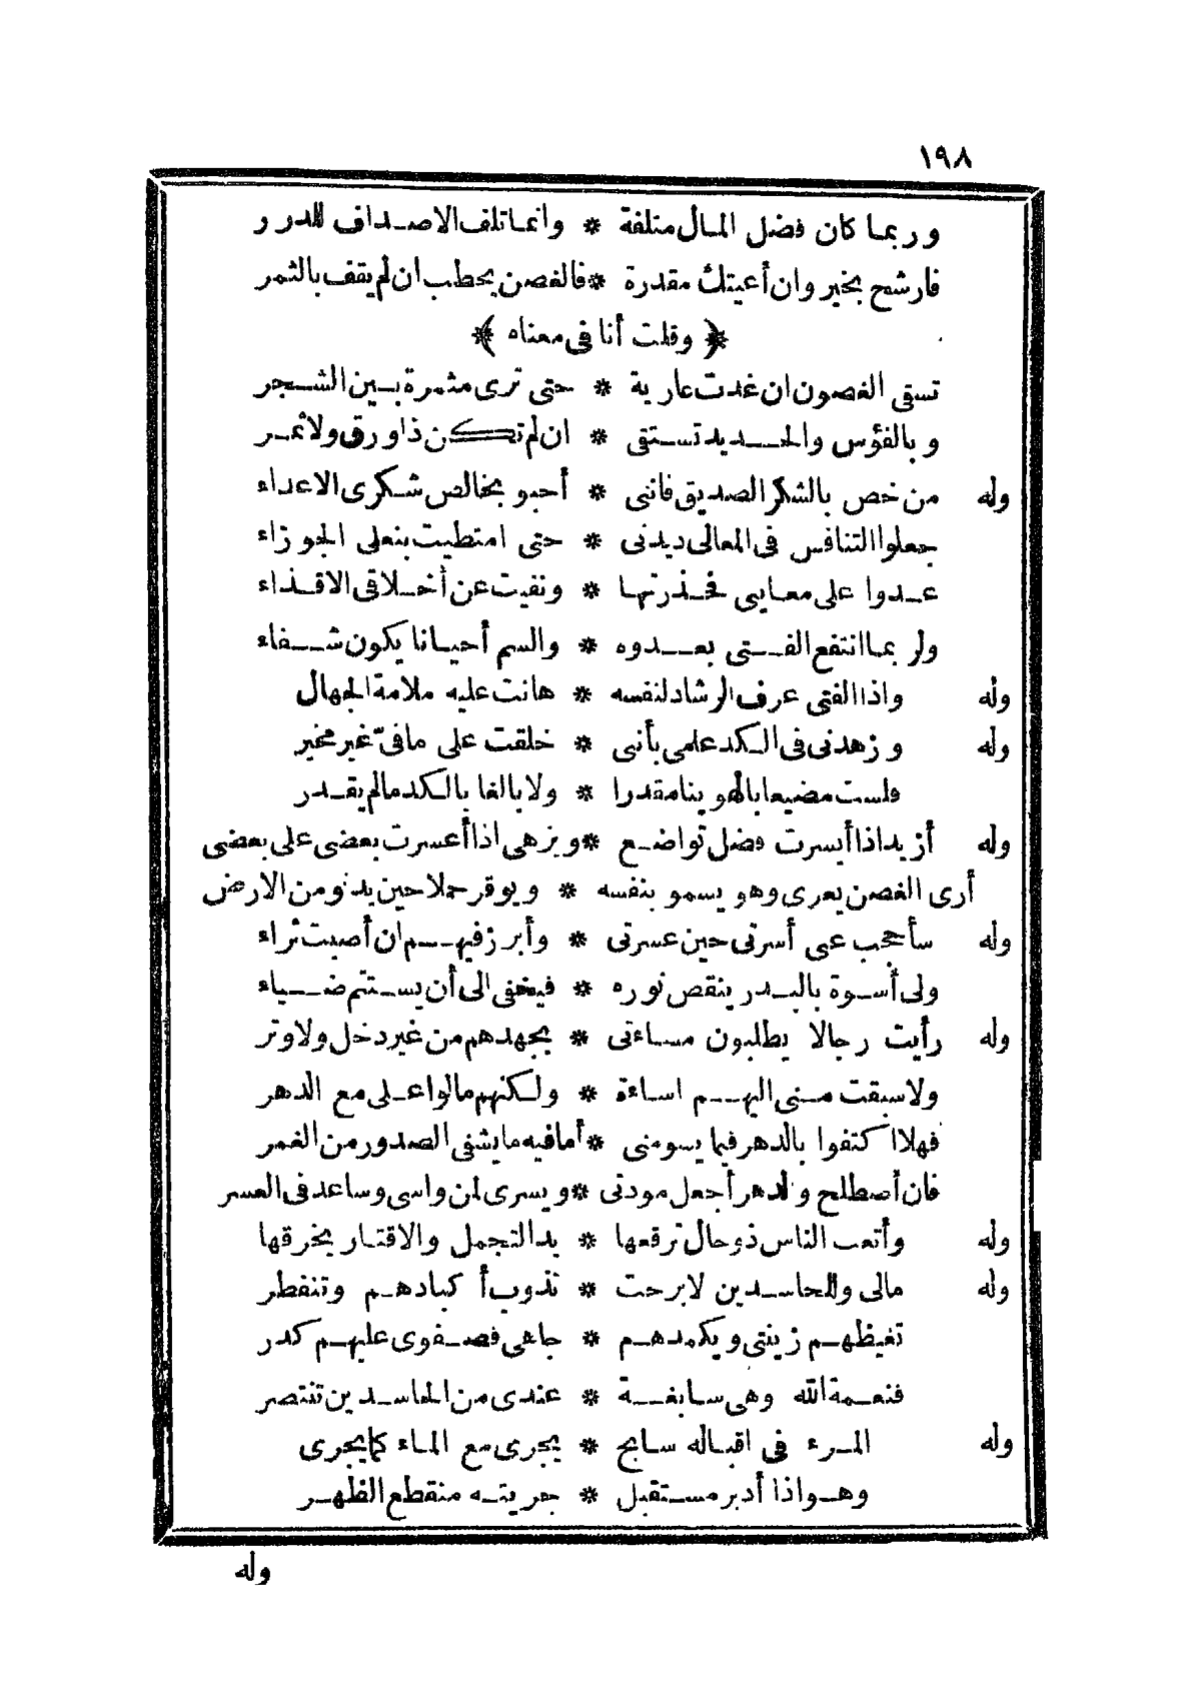 ١٩٨
وربما كان فضل المال متلفة * وانما تلف الاصداف للدرر
فارشح بخير وان أعيتك مقدرة * فالغصن يحطب ان لم يقف بالثمر
﴿ وقلت أنا فى معناه ﴾
تسقى الغصون ان غدت عارية * حتى ترى مثمرة بين الشجر
وبالفؤس والحديد تستقى * ان لم تكن ذا ورق ولا ثمر
وله من خص بالشكر الصديق فاننى * أحبو بخالص شكرى الاعداء
جعلوا التنافس فى المعالى ديدنى * حتى امتطيت بنعلى الجوزاء
عدوا على معايبى فحذرتها * ونفيت عن أخلاقى الاقذاء
ولربما انتفع الفتى بعدوه * والسم أحيانا يكون شفاء
وله واذا الفتى عرف الرشاد لنفسه * هانت عليه ملامة الجهال
وله وزهدنى فى الكد علمى بأننى * خلقت على ما فىّ غير مخير
فلست مضيعا بالهوينا مقدرا * ولا بالغا بالكد مالم يقدر
وله أزيد اذا أيسرت فضل تواضع * ويزهى اذا أعسرت بعضى على بعضى
أرى الغصن يعرى وهو يسمو بنفسه * ويوقر حملا حين يدنو من الارض
وله سأحجب عنى أسرتى حين عسرتى * وأبرز فيهم ان أصبت ثراء
ولى أسوة بالبدر ينقص نوره * فيخفى الى أن يستتم ضياء
وله رأيت رجالا يطلبون مساءتى * بجهدهم من غير دخل ولا وتر
ولا سبقت منى اليهم اساءة * ولكنهم مالوا على مع الدهر
فهلا اكتفوا بالدهر فيما يسومنى * أما فيه ما يشفى الصدور من الغمر
فان أصطلح والدهر أجعل مودتى * ويسرى لمن واسى وساعد فى العسر
وله وأتعب الناس ذو حال ترقعها * يد التجمل والاقتار يخرقها
وله مالى وللحاسدين لا برحت * تذوب أكبادهم وتنفطر
تغيظهم زينتى ويكمدهم * جاهى فصفوى عليهم كدر
فنعمة الله وهى سابغة * عندى من الحاسدين تنتصر
وله المرء فى اقباله سابح * يجرى مع الماء كما يجرى
وهو اذا أدبر مستقبل * جريته منقطع الظهر
وله